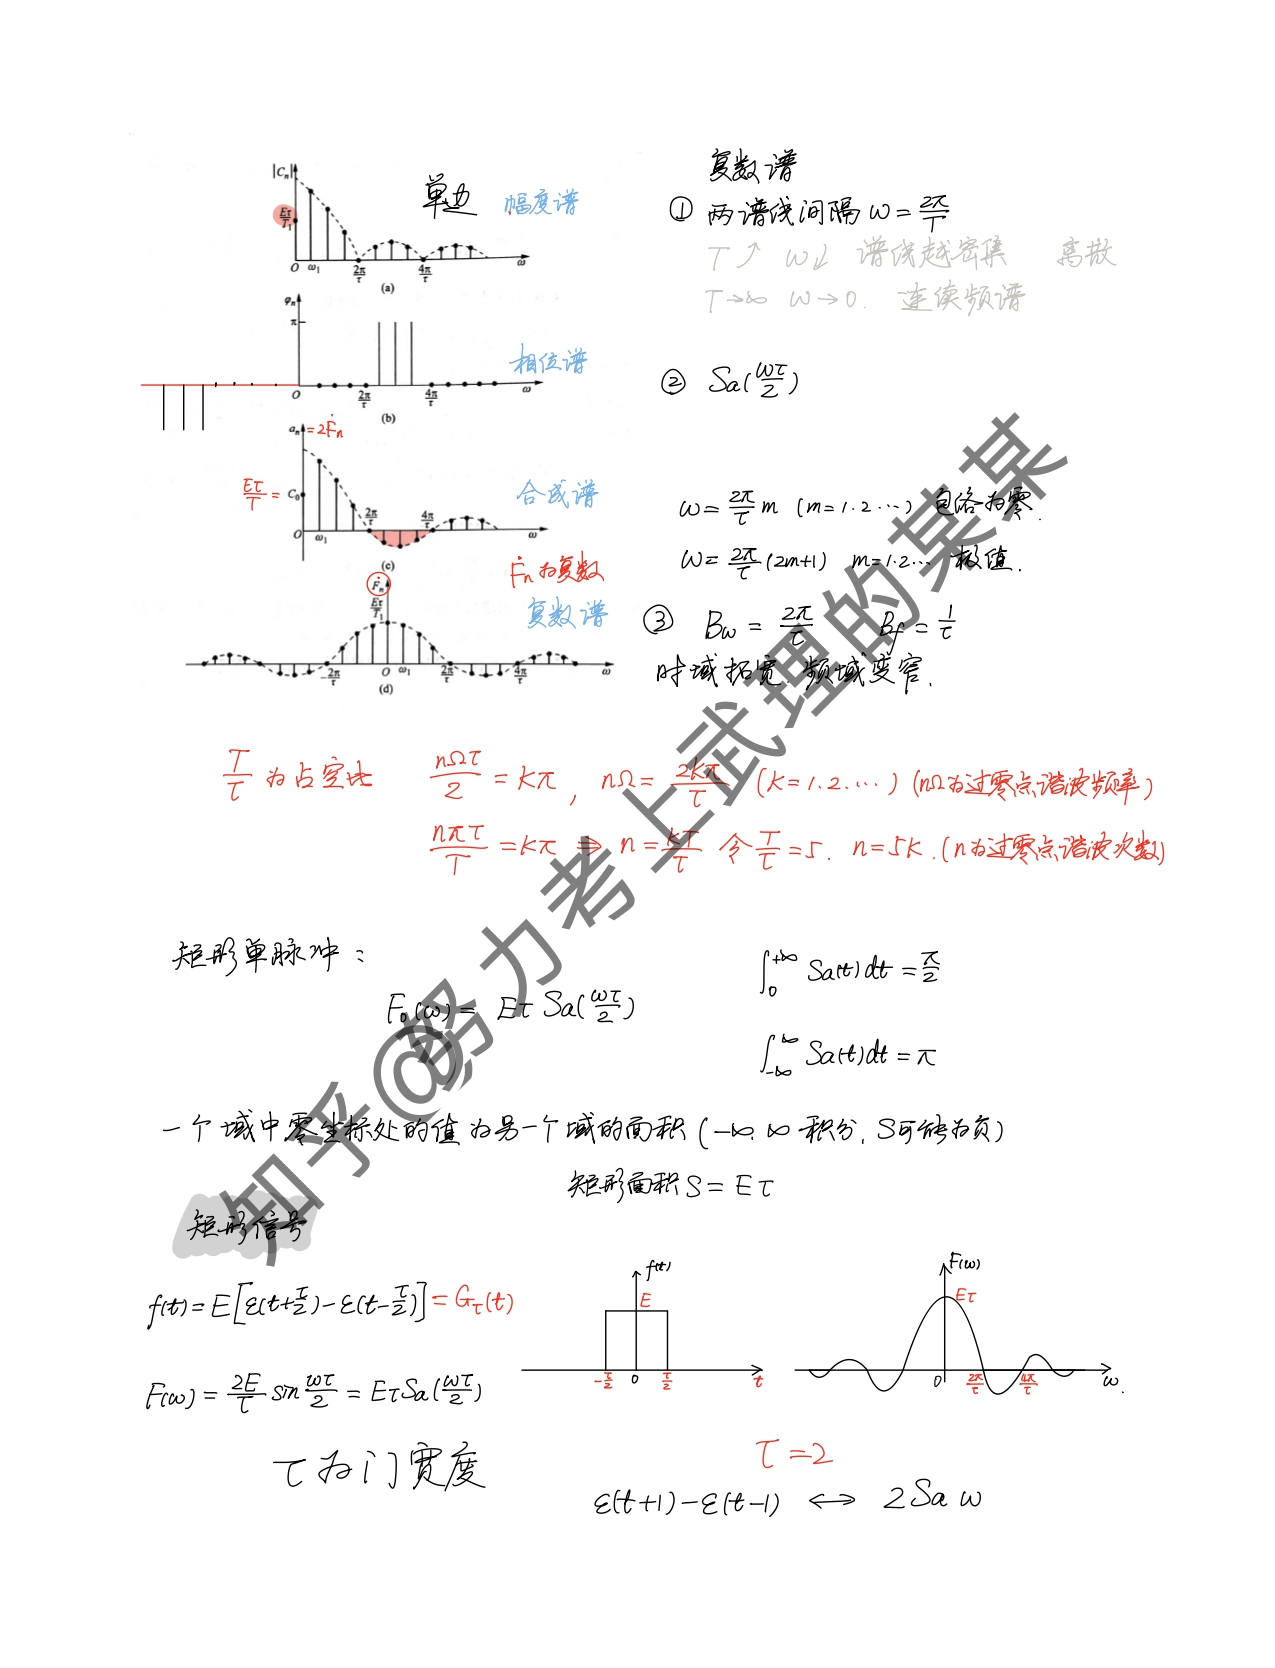 |Cₙ|
Eτ/T₁
O ω₁ 2π/τ 4π/τ ω
(a)
单边 幅度谱
φₙ
π
O 2π/τ 4π/τ ω
(b)
相位谱
aₙ = 2Ḟₙ
Eτ/T = C₀
2π/τ 4π/τ
O ω₁ ω
(c)
合成谱
Ḟₙ为复数
Ḟₙ
Eτ/T₁
复数谱
-2π/τ O ω₁ 2π/τ 4π/τ ω
(d)
复数谱
① 两谱线间隔 ω = 2π/T
T↗ ω↓ 谱线越密集 离散
T→∞ ω→0. 连续频谱
② Sa(ωτ/2)
ω = 2π/τ m (m=1.2…) 包络为零.
ω = 2π/τ (2m+1) m=1.2… 极值.
③ Bω = 2π/τ Bf = 1/τ
时域拓宽 频域变窄.
T/τ 为占空比 nΩτ/2 = kπ, nΩ = 2kπ/τ (k=1.2.…) (nΩ为过零点谐波频率)
nπτ/T = kπ ⇒ n = kT/τ 令 T/τ = 5. n=5k. (n为过零点谐波次数)
矩形单脉冲:
F₀(ω) = Eτ Sa(ωτ/2)
∫₀^{+∞} Sa(t)dt = π/2
∫_{-∞}^{∞} Sa(t)dt = π
一个域中零坐标处的值为另一个域的面积 (-∞.∞ 积分, S可能为负)
矩形面积 S = Eτ
矩形信号
f(t) = E[ε(t+τ/2)-ε(t-τ/2)] = Gτ(t)
F(ω) = 2E/τ sin ωτ/2 = EτSa(ωτ/2)
τ为门宽度
f(t)
E
-τ/2 0 τ/2 t
F(ω)
Eτ
0 2π/τ 4π/τ ω.
τ=2
ε(t+1)-ε(t-1) ↔ 2Sa ω
知乎@努力考上武理的某某